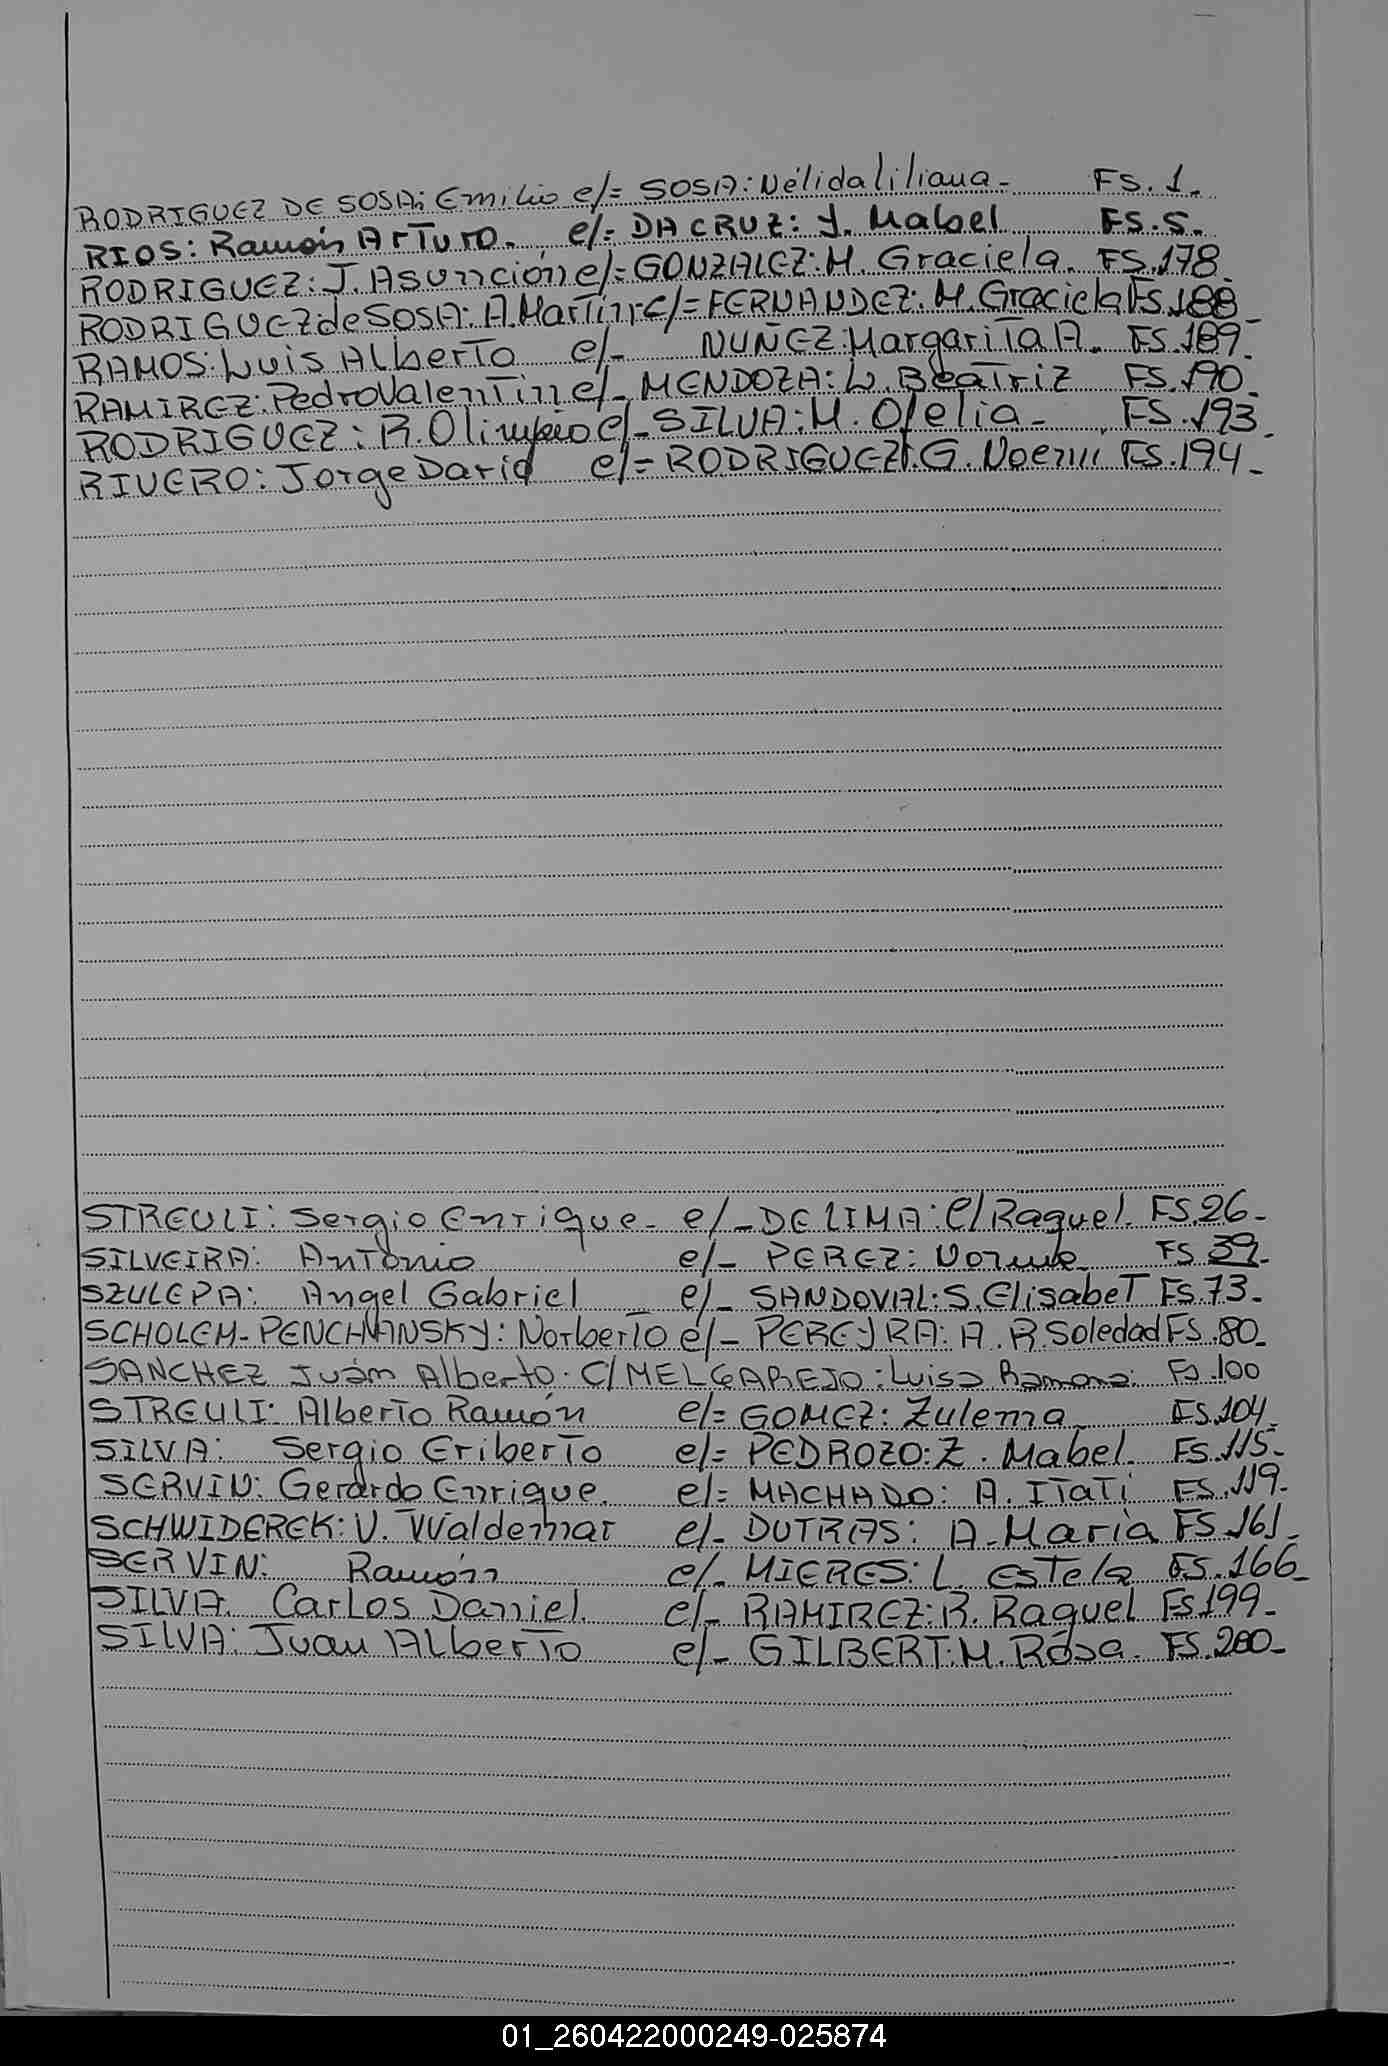 RODRIGUEZ DE SOSA: Emilio c/= SOSA: Nélida liliana- FS. 1.
RIOS: Ramón ArTuro. c/= DA CRUZ: J. Mabel FS. 5.
RODRIGUEZ: J. Asunción c/= GONZALEZ: M. Graciela. FS. 178.
RODRIGUEZ de SOSA: A. MarTín c/= FERNANDEZ: M. Graciela FS. 188-
RAMOS: Luis AlberTo c/- NUÑEZ: MargariTa A. FS. 189-
RAMIREZ: Pedro ValenTín c/- MENDOZA: L. BeaTriz FS. 190-
RODRIGUEZ: R. Olimpio c/- SILVA: M. Ofelia- FS. 193-
RIVERO: Jorge Darío c/= RODRIGUEZ: G. Noemí FS. 194-
STREULI: Sergio Enrique- c/- DE LIMA: C/ Raquel. FS. 26-
SILVEIRA: AnTonio c/- PEREZ: FS. 39-
SZULEPA: Angel Gabriel c/- SANDOVAL: S. ElisabeT FS. 73-
SCHOLEM-PENCHANSKY: NorberTo c/- PEREYRA: A. R. Soledad FS. 80-
SANCHEZ Juám Alberto. C/ MELGAREJO: Luisa Ramona: FS. 100
STREULI: AlberTo Ramón c/= GOMEZ: Zulema FS. 104-
SILVA: Sergio EriberTo c/= PEDROZO: Z. Mabel. FS. 115-
SERVIN: Gerardo Enrique. c/= MACHADO: A. ITaTí FS. 119-
SCHWIDEREK: V. Waldemar c/- DUTRAS: A. María FS. 161-
SERVIN: Ramón c/- MIERES: L. EsTela FS. 166-
SILVA. Carlos Daniel. c/- RAMIREZ: R. Raquel FS. 199-
SILVA: Juan AlberTo c/- GILBERT: M. Rosa. FS. 200-
01_260422000249-025874